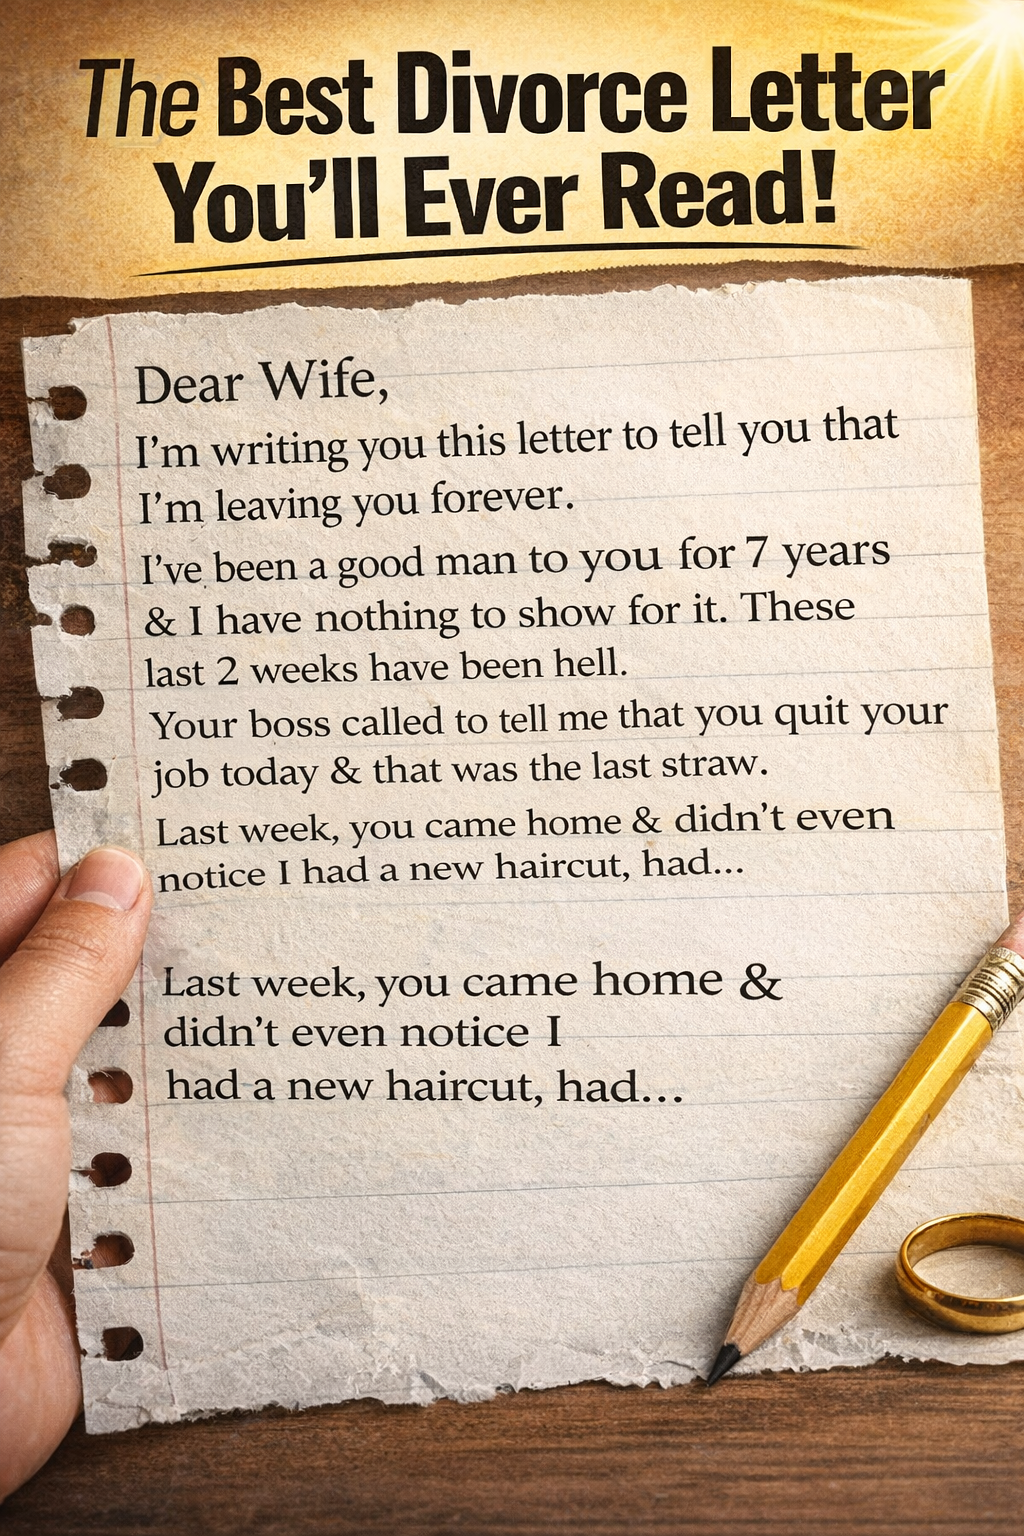 The Best Divorce Letter
You'll Ever Read!
Dear Wife,
I'm writing you this letter to tell you that
I'm leaving you forever.
I've been a good man to you for 7 years
& I have nothing to show for it. These
last 2 weeks have been hell.
Your boss called to tell me that you quit your
job today & that was the last straw.
Last week, you came home & didn't even
notice I had a new haircut, had...
Last week, you came home &
didn't even notice I
had a new haircut, had...